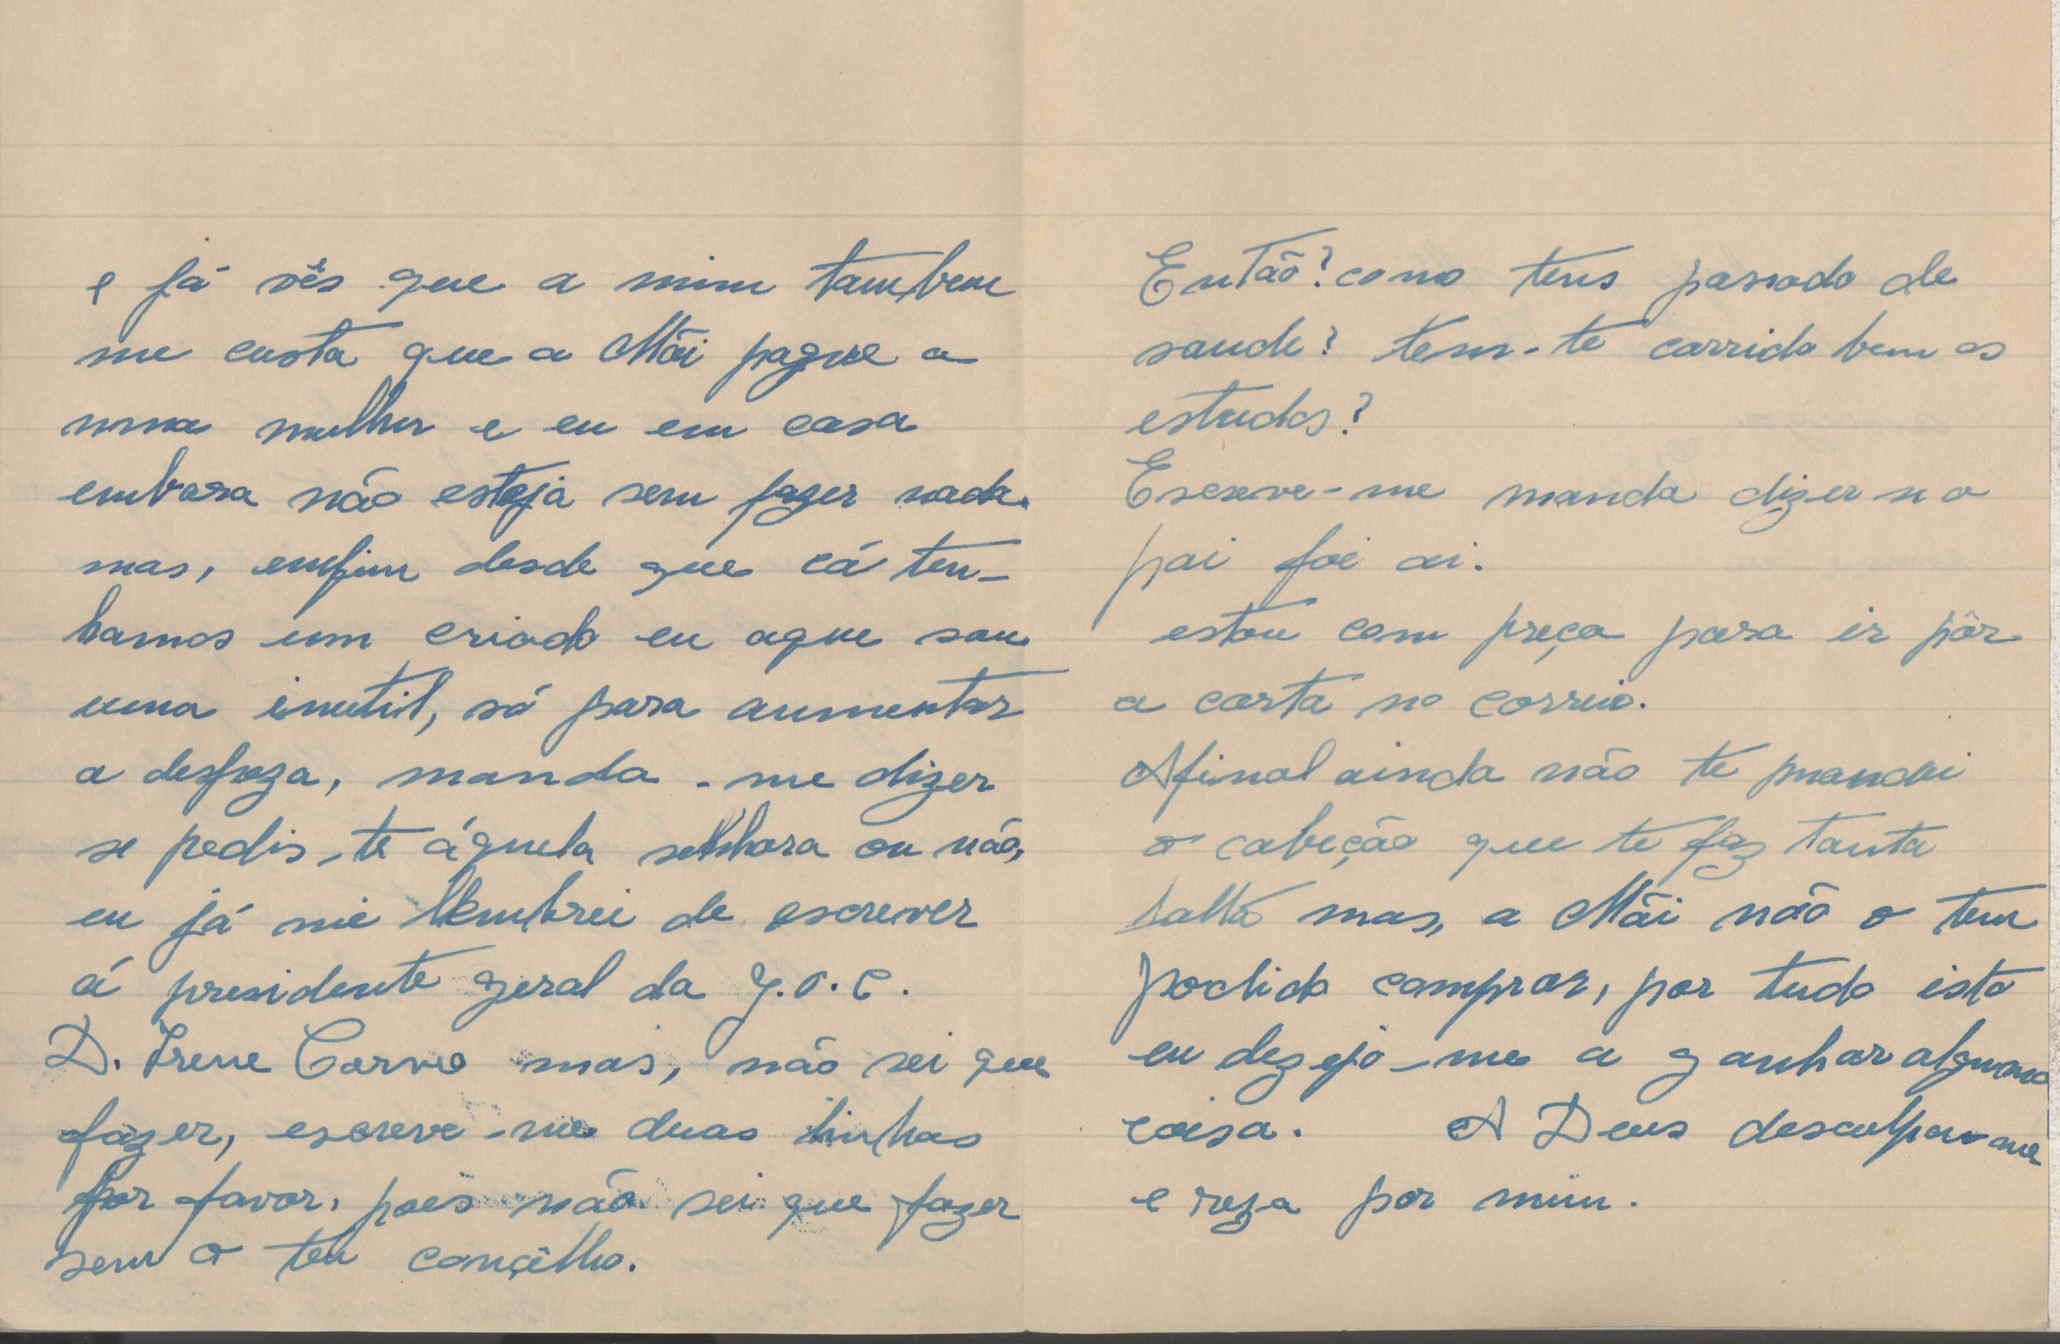 e já vês que a mim tambem
me custa que a Mãi pague a
uma mulher e eu em casa
embora não esteja sem fazer nada.
mas, emfim desde que cá ten-
hamos um criado eu aque sou
uma inutil, só para aumentar
a despeza, manda-me dizer
se pedis-te áquela senhora ou não,
eu já me lembrei de escrever
á presidente geral da J.O.C.
D. Irene Corvo mas, não sei que
fazer, escreve-me duas linhas
por favor, pois não sei que fazer
sem o teu concêlho.
Então? como tens passado de
saude? tem-te corrido bem os
estudos?
Escreve-me manda dizer se o
pai foi ai.
estou com preça para ir pôr
a carta no correio.
Afinal ainda não te mandei
o cabeção que te faz tanta
falta mas, a Mãi não o tem
podido comprar, por tudo isto
eu dezejo-me a ganhar alguma
coisa. A Deus desculpa-me
e reza por mim.